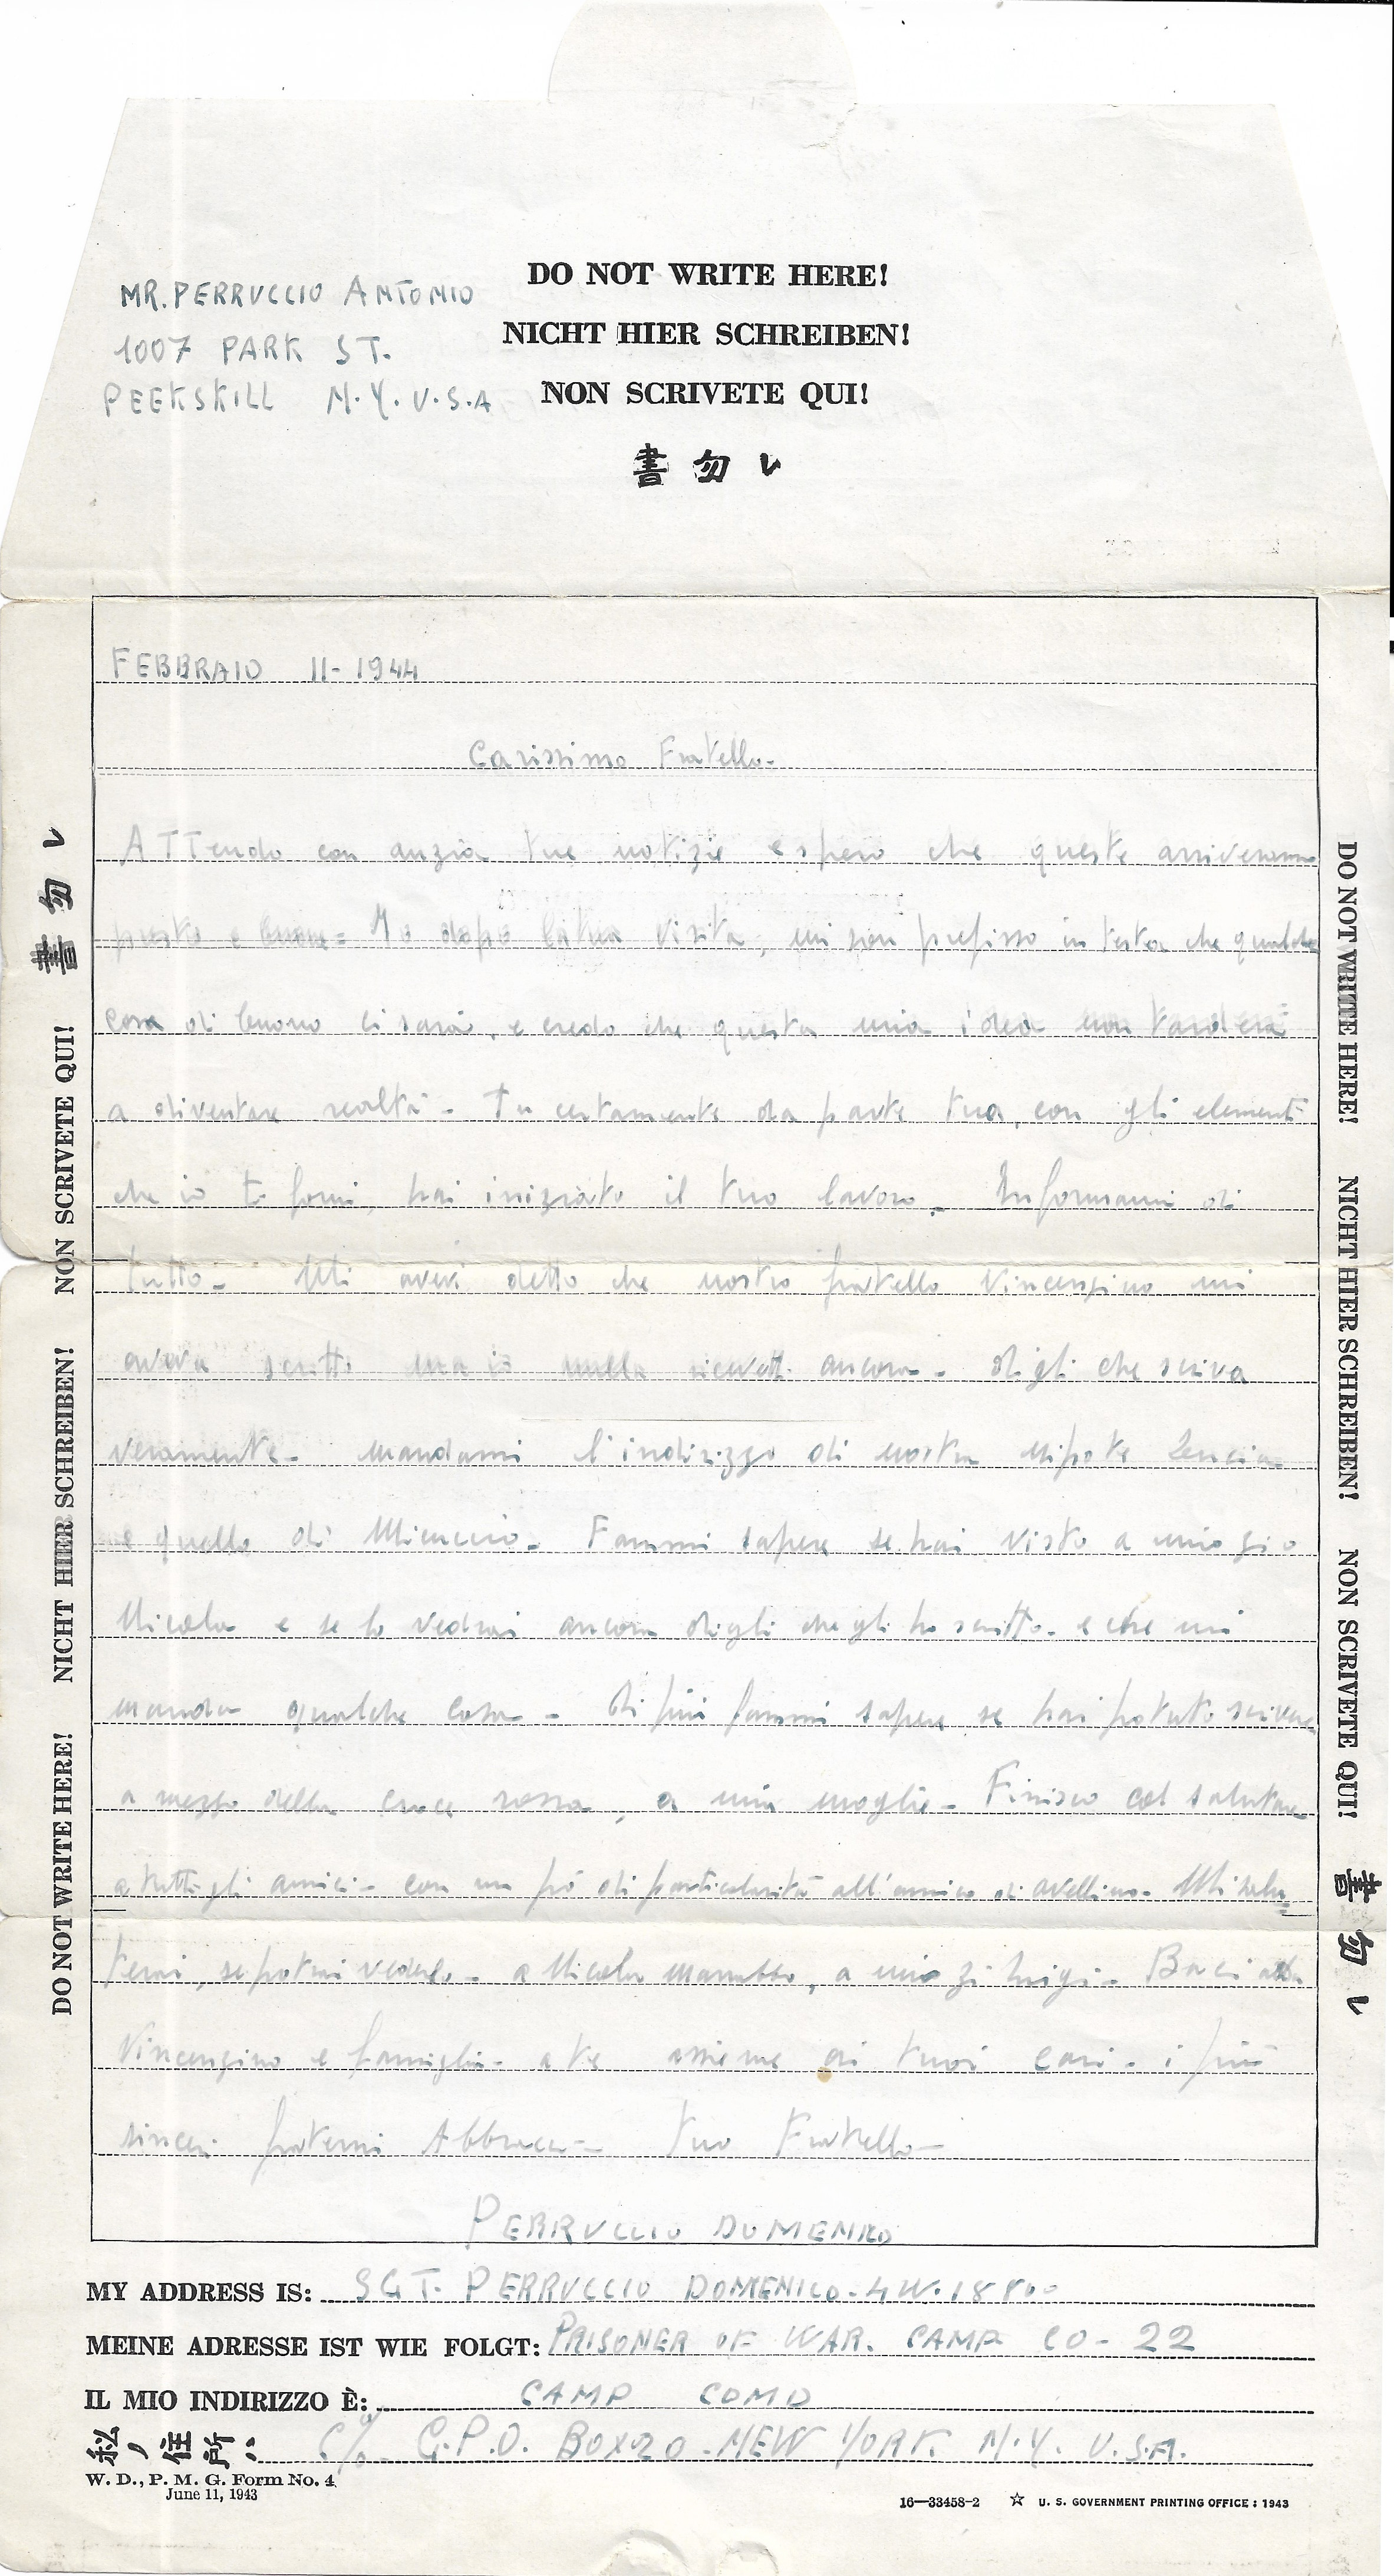 MR. PERRUCCIO ANTONIO
1007 PARK ST.
PEEKSKILL N.Y. U.S.A
DO NOT WRITE HERE!
NICHT HIER SCHREIBEN!
NON SCRIVETE QUI!
書 勿 レ
FEBBRAIO 11-1944
Carissimo Fratello-
ATTendo con anzia tue notizie e spero che queste arriveranno
presto e buone= Io dopo la tua visita, mi son prefisso in testa che qualche
cosa di buono ci sarà, e credo che questa mia idea non tarderà
a diventare realtà- Tu certamente da parte tua, con gli elementi
che io ti forni, hai iniziato il tuo lavoro- Informami di
tutto- Mi avevi detto che nostro fratello Vincenzino mi
aveva scritto ma io nulla ricevetti ancora- digli che scriva
veramente- mandami l'indirizzo di nostra nipote
e quello di Minuccio- Fammi sapere se hai visto a mio zio
Nicola e se lo vedrai ancora digli che gli ho scritto- e che mi
manda qualche cosa- di più fammi sapere se hai potuto scrivere
a mezzo della croce rossa, a mia moglie- Finisco col salutare
a tutti gli amici- con un pò di particolarità all'amico di avellino- Mi saluterai, se potrai vederlo- a Nicola, a mio zi luigi- Baci a
Vincenzino e famiglia- a te assieme ai tuoi cari- i più
sinceri fraterni Abbracci- tuo Fratello-
PERRUCCIO DOMENICO
MY ADDRESS IS: SGT. PERRUCCIO DOMENICO-4W-18800
MEINE ADRESSE IST WIE FOLGT: PRISONER OF WAR. CAMP CO-22
IL MIO INDIRIZZO È: CAMP COMO
私ノ住所ハ C/o G.P.O. BOX 20-NEW YORK. N.Y. U.S.A.
W. D., P. M. G. Form No. 4
June 11, 1943
16—33458-2 ☆ U. S. GOVERNMENT PRINTING OFFICE : 1943
DO NOT WRITE HERE! NICHT HIER SCHREIBEN! NON SCRIVETE QUI! 書 勿 レ
DO NOT WRITE HERE! NICHT HIER SCHREIBEN! NON SCRIVETE QUI! 書 勿 レ